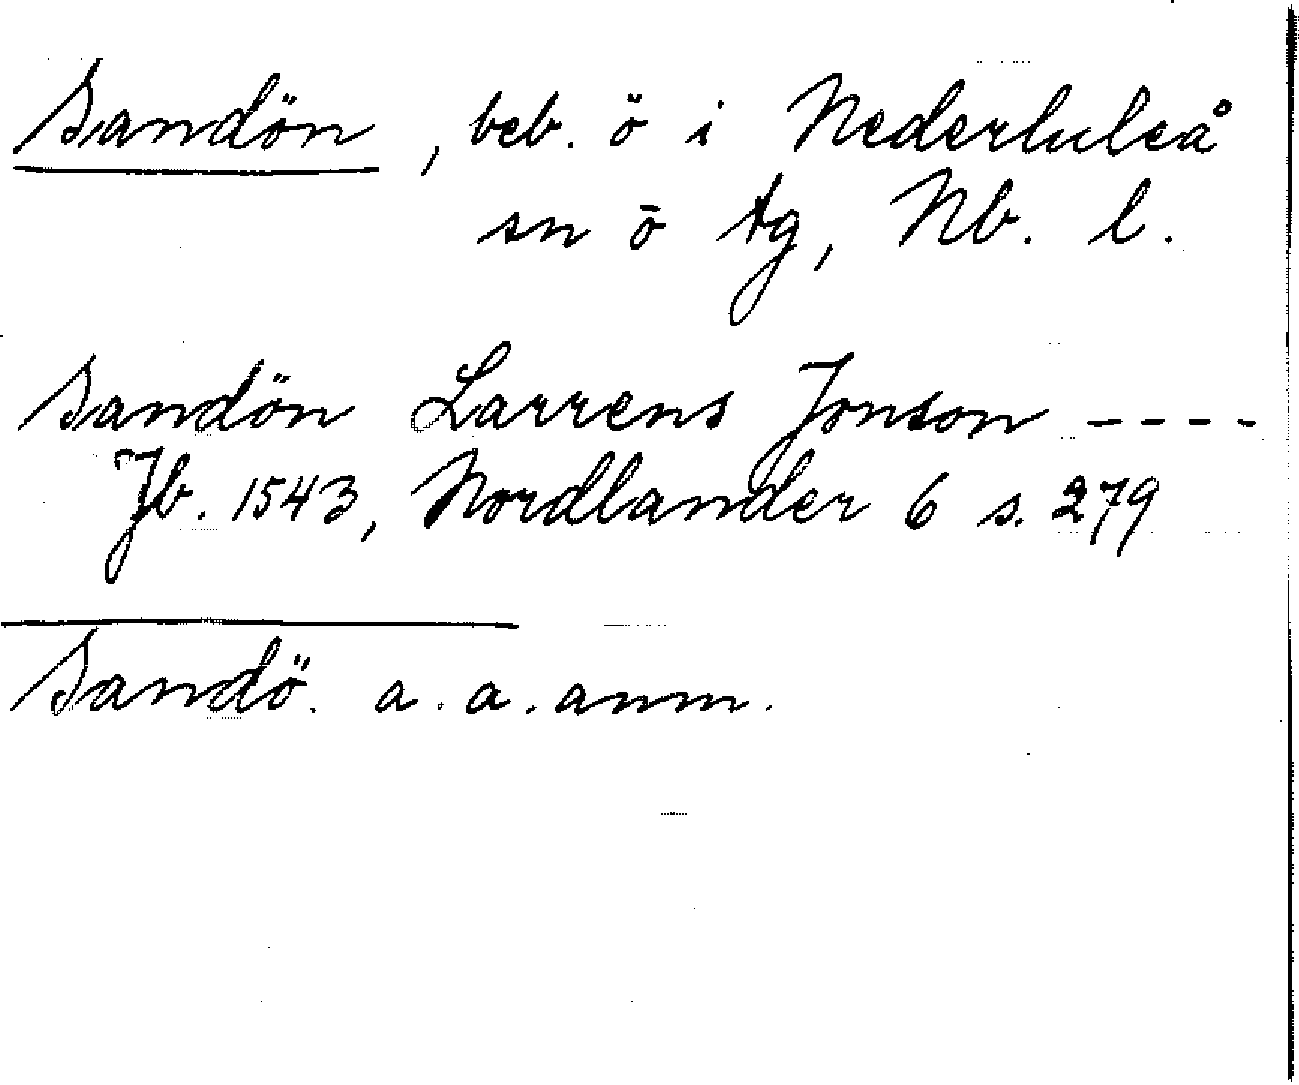 Sandön, beb. ö i Nederluleå
sn o tg, Nb. l.
Sandön Larrens Jonson ----
Jb. 1543, Nordlander 6 s. 279
Sandö. a. a. anm.